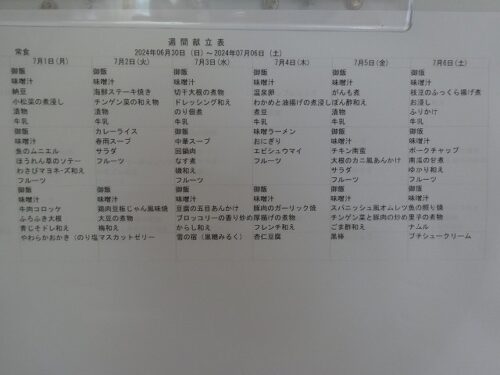 週間献立表
常食
2024年06月30日（日）～2024年07月06日（土）
7月1日(月) 7月2日(火) 7月3日(水) 7月4日(木) 7月5日(金) 7月6日(土)
御飯 御飯 御飯 御飯 御飯 御飯
味噌汁 味噌汁 味噌汁 味噌汁 味噌汁 味噌汁
納豆 海鮮ステーキ焼き 切干大根の煮物 温泉卵 がんも煮 枝豆のふっくら揚げ煮
小松菜の煮浸し チンゲン菜の和え物 ドレッシング和え わかめと油揚げの煮浸し ぽん酢和え お浸し
漬物 漬物 のり佃煮 煮豆 漬物 ふりかけ
牛乳 牛乳 牛乳 牛乳 牛乳 牛乳
御飯 カレーライス 御飯 味噌ラーメン 御飯 御飯
味噌汁 春雨スープ 中華スープ おにぎり 味噌汁 味噌汁
魚のムニエル サラダ 回鍋肉 エビシュウマイ チキン南蛮 ポークチャップ
ほうれん草のソテー フルーツ なす煮 フルーツ 大根のカニ風あんかけ 南瓜の甘煮
わさびマヨネーズ和え 磯和え サラダ ゆかり和え
フルーツ フルーツ フルーツ フルーツ
御飯 御飯 御飯 御飯 御飯 御飯
味噌汁 味噌汁 味噌汁 味噌汁 味噌汁 味噌汁
牛肉コロッケ 鶏肉豆板じゃん風味焼 豆腐の五目あんかけ 豚肉のガーリック焼 スパニッシュ風オムレツ 魚の照り焼
ふろふき大根 大豆の煮物 ブロッコリーの香り炒め 厚揚げの煮物 チンゲン菜と豚肉の炒め 里子の煮物
青じそドレ和え 梅和え からし和え フレンチ和え ごま酢和え ナムル
やわらかおかき（のり塩 マスカットゼリー 雪の宿（黒糖みるく） 杏仁豆腐 黒棒 プチシュークリーム